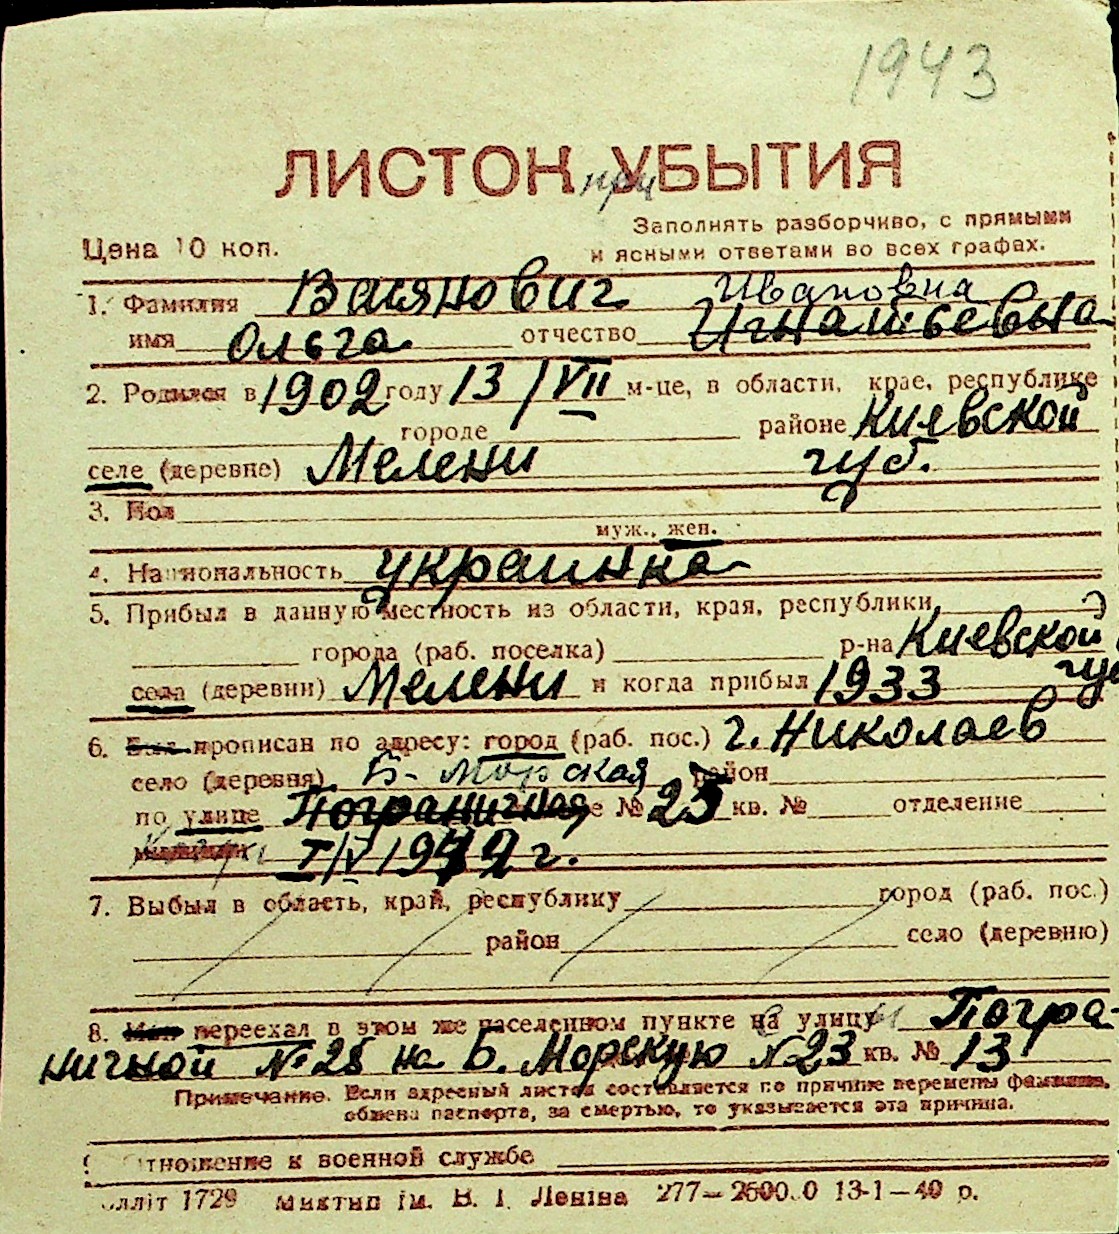 1943
ЛИСТОК при УБЫТИЯ
Заполнять разборчиво, с прямыми
Цена 10 коп. и ясными ответами во всех графах.
Ивановна
1. Фамилия Васянович
имя Ольга отчество Игнатьевна
2. Родился в 1902 году 13/VII м-це, в области, крае, республике
городе районе Киевской
селе (деревне) Мелени губ.
3. Пол
муж., жен.
4. Национальность украинка
5. Прибыл в данную местность из области, края, республики
города (раб. поселка) р-на Киевской
села (деревни) Мелени и когда прибыл 1933 гу
6. прописан по адресу: город (раб. пос.) г. Николаев
село (деревня) Б-Морская район
по улице Пограничная №25 кв. № отделение
I/V 1942 г.
7. Выбыл в область, край, республику город (раб. пос.)
район село (деревню)
8. переехал в этом же населенном пункте на улицу Погра-
ничной №25 на Б. Морскую №23 кв. № 13
Примечание. Если адресный листок составляется по причине перемены фамилии,
обмена паспорта, за смертью, то указывается эта причина.
тношение к военной службе
лліт 1729 Миктип ім. В. І. Леніна 277— 13-1—40 р.